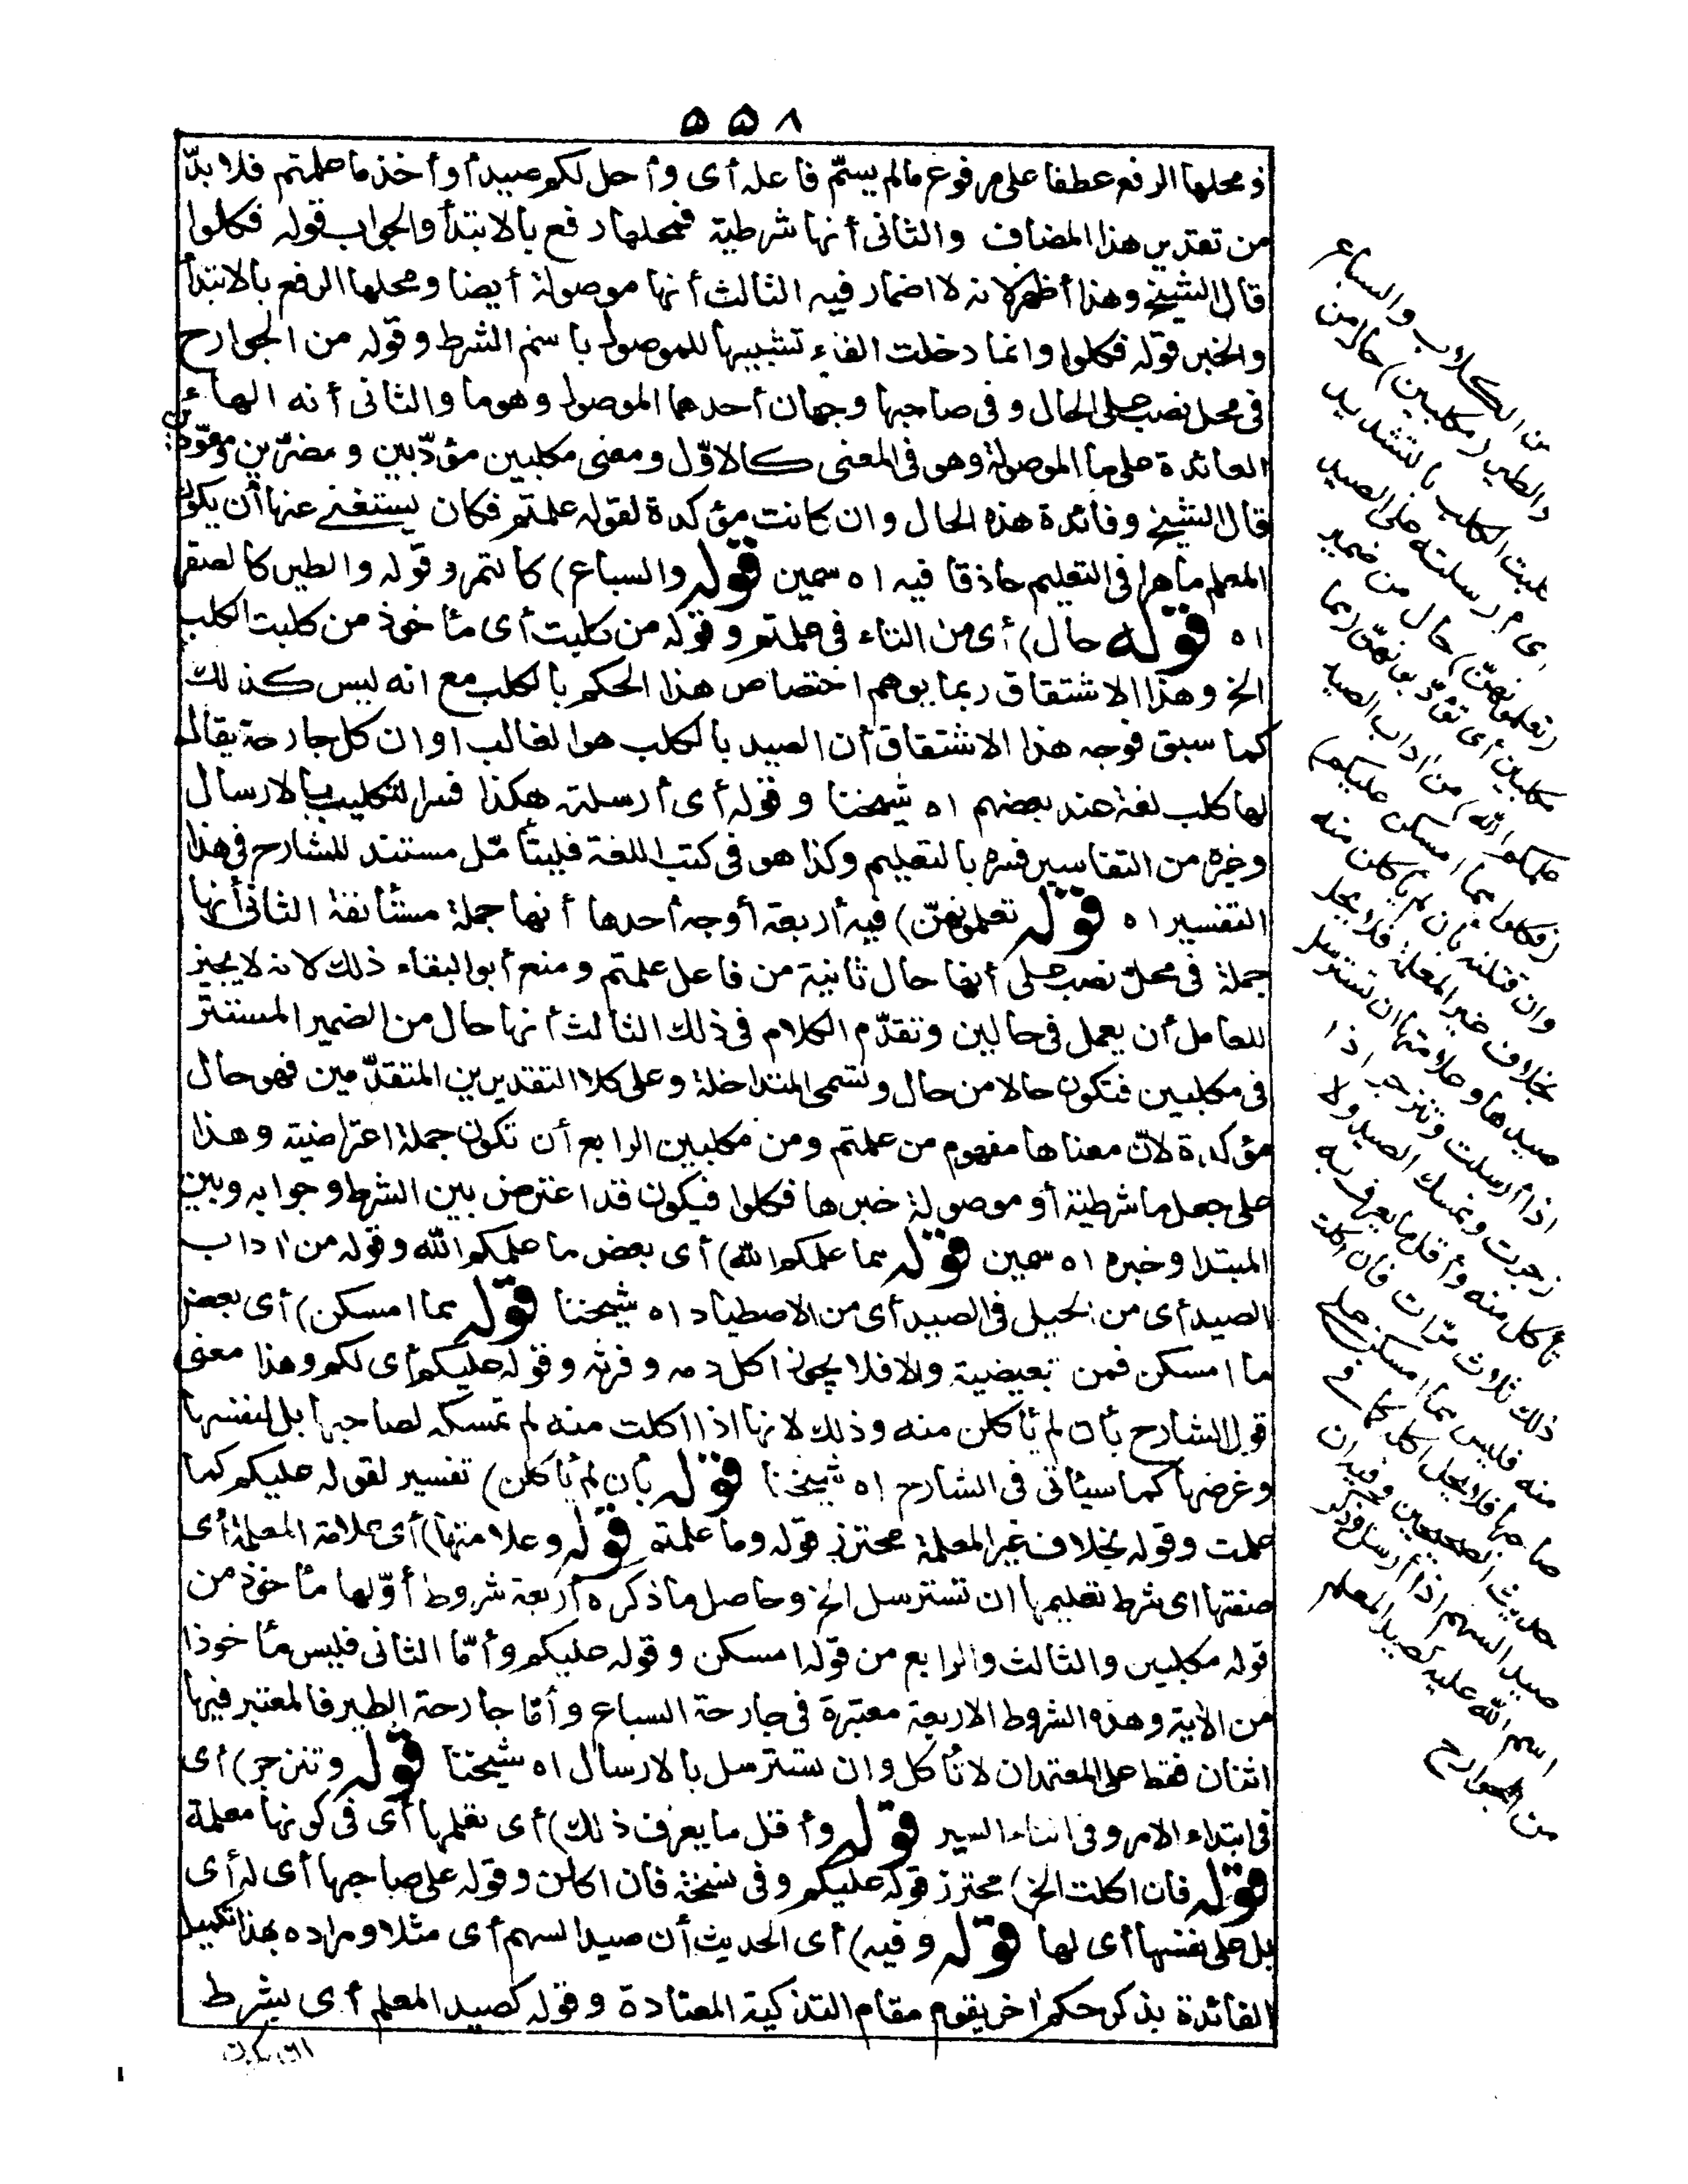 ٥٥٨
فمحلها الرفع عطفا على مرفوع مالم يسمّ فاعله أى وأحل لكم صيد أو أخذ ما علمتم فلا بدّ
من تقدير هذا المضاف والثانى أنها شرطية فمحلها رفع بالابتدأ والجواب قوله فكلوا
قال الشيخ وهذا أظهر لانه لا اضمار فيه الثالث أنها موصولة أيضا ومحلها الرفع بالابتدأ
والخبر قوله فكلوا وانما دخلت الفاء تشبيها للموصول باسم الشرط وقوله من الجوارح
فى محل نصب على الحال وفى صاحبها وجهان أحدهما الموصول وهو ما والثانى أنه الهاء
العائدة على ما الموصولة وهو فى المعنى كالاوّل ومعنى مكلبين مؤدّبين ومضرّين ومعوّدين
قال الشيخ وفائدة هذه الحال وان كانت مؤكدة لقوله علمتم فكان يستغنى عنها أن يكون
المعلم ماهرا فى التعليم حاذقا فيه اه سمين قوله والسباع) كالنمر وقوله والطير كالصقر
اه قوله حال) أى من التاء فى علمتم وقوله من كلبت أى مأخوذ من كلبت الكلب
الخ وهذا الاشتقاق ربما يوهم اختصاص هذا الحكم بالكلب مع انه ليس كذلك
كما سبق فوجه هذا الاشتقاق أن الصيد بالكلب هو الغالب اوان كل جارحة يقال
لها كلب لغة عند بعضهم اه شيخنا وقوله أى أرسلته هكذا فسر التكليب بالارسال
وغيره من التفاسير فسره بالتعليم وكذا هو فى كتب اللغة فليتأمّل مستند للشارح فى هذا
التفسير اه قوله تعلمونهنّ) فيه أربعة أوجه أحدها أنها جملة مستأنفة الثانى أنها
جملة فى محل نصب على أنها حال ثانية من فاعل علمتم ومنع أبو البقاء ذلك لانه لا يجيز
للعامل أن يعمل فى حالين وتقدّم الكلام فى ذلك الثالث أنها حال من الضمير المستتر
فى مكلبين فتكون حالا من حال وتسمى المتداخلة وعلى كلا التقديرين المتقدّمين فهو حال
مؤكدة لانّ معناها مفهوم من علمتم ومن مكلبين الرابع أن تكون جملة اعتراضية وهذا
على جعل ما شرطية أو موصولة خبرها فكلوا فيكون قد اعترض بين الشرط وجوابه وبين
المبتدا وخبره اه سمين قوله مما علمكم الله) أى بعض ما علمكم الله وقوله من اٰداب
الصيد أى من الحيل فى الصيد أى من الاصطياد اه شيخنا قوله مما امسكن) أى بعض
ما امسكن فمن تبعيضية والا فلا يجوز اكل دمه وفرثه وقوله عليكم أى لكم وهذا معنى
قول الشارح بأن لم يأكلن منه وذلك لانها اذا اكلت منه لم تمسكه لصاحبها بل لنفسها
وغرضها كما سيأتى فى الشارح اه شيخنا قوله بأن لم يأكلن) تفسير لقوله عليكم كما
علمت وقوله بخلاف غير المعلمة محترز قوله وما علمتم قوله وعلامتها) أى علامة المعلمة أى
صفتها اى شرط تعليمها ان تسترسل الخ وحاصل ما ذكره أربعة شروط أوّلها مأخوذ من
قوله مكلبين والثالث والرابع من قوله امسكن وقوله عليكم وأمّا الثانى فليس مأخوذا
من الآية وهذه الشروط الاربعة معتبرة فى جارحة السباع وأمّا جارحة الطير فالمعتبر فيها
اثنان فقط على المعتمد ان لا تأكل وان تسترسل بالارسال اه شيخنا قوله وتنزجر) أى
فى ابتداء الامر وفى اثناء السير قوله وأقل ما يعرف ذلك) أى تعلمها أى فى كونها معلمة
قوله فان اكلت الخ) محترز قوله عليكم وفى نسخة فان اكلن وقوله على صاحبها أى له أى
بل على نفسها أى لها قوله وفيه) أى الحديث أن صيد السهم أى مثلا ومراده بهذا تكميل
الفائدة بذكر حكم اٰخر يقوم مقام التذكية المعتادة وقوله كصيد المعلم أى بشرط
من الكلاب والسباع
والطير (مكلبين) حال من
كلبت الكلب بالتشديد
اى أرسلته على الصيد
(تعلمونهنّ) حال من ضمير
مكلبين أى تؤدّبونهنّ (مما
علمكم الله) من اٰداب الصيد
(فكلوا مما امسكن عليكم)
وان قتلنه بأن لم يأكلن منه
بخلاف غير المعلمة فلا يحل
صيدها وعلامتها ان تسترسل
اذا أرسلت وتنزجر اذا
زجرت وتمسك الصيد ولا
تأكل منه وأقل ما يعرف به
ذلك ثلاث مرّات فان اكلت
منه فليس مما امسكن على
صاحبها فلا يحل اكله كما فى
حديث الصحيحين وفيه ان
صيد السهم اذا أرسل وذكر
اسم الله عليه كصيد المعلم
من الجوارح